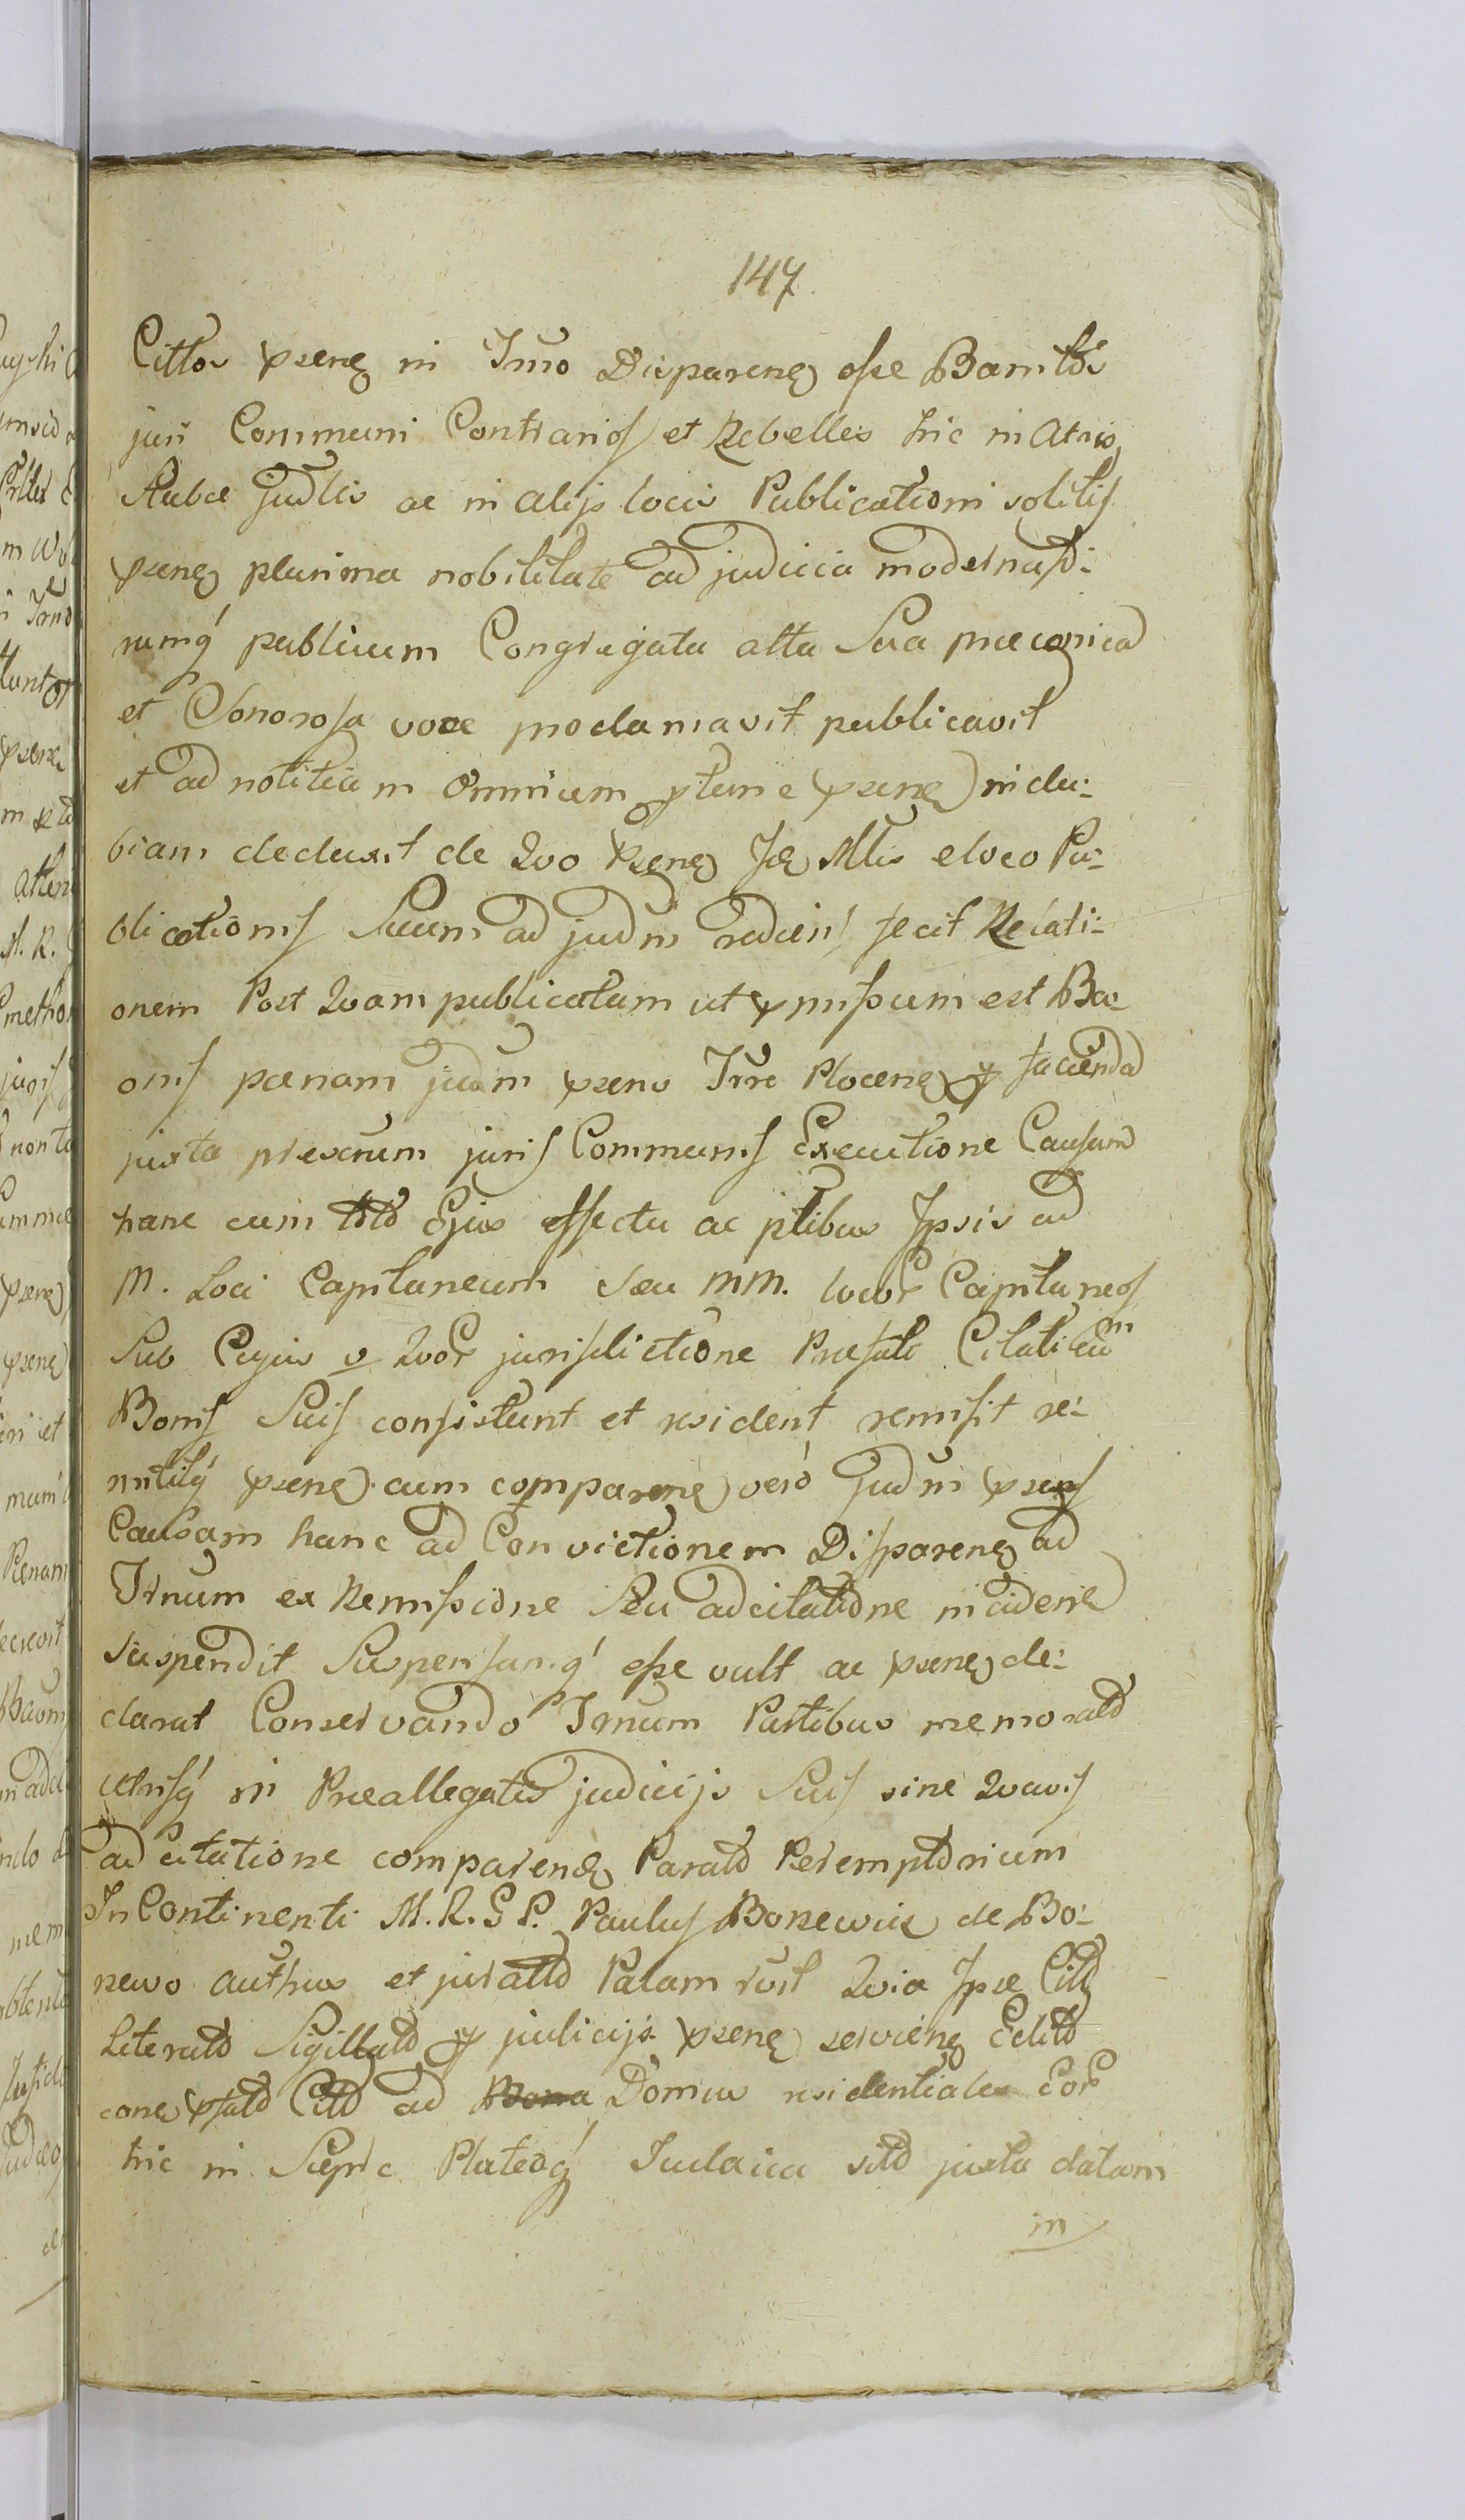 147.
Cittos pseneq in Trno Dispareneq esse Bannitos
juri Communi Contrarios et Rebelles hic in Atrio
Stubæ Judlis ac in alijs locis Publicationi solitis
pseneq plurima nobilitate ad judicia moderna fo:
rumq publicum Congregata alta Sua præconica
et Sonorosa voce proclamavit publicavit
et ad notitiam Omnium ptunc pseneq indu:
biam deduxit de Quo pseneq Ideq Mlis eloco Pu:
blicationis Suum ad judm rediens fecit Relati:
onem Post Quam publicatam ut pmissum est Ba:
onis poenam judm psens Trre Plocenseq p facienda
juxta prexrum juris Communis Executione Causam
hanc cum toto Ejus effectu ac ptibus Ipsis ad
M. Loci Capitaneum seu MM. locor Capitaneos
Sub Cujus v Quor jurisdictione Præfati Citati cum
Bonis Suis consistunt et resident remisit re:
mittitq pseneq. cum compareneq vero Judm psens
Causam hanc ad Convictionem Dispareneq ad
Trnum ex Remissione Seu adcitatione inciden
suspendit Suspensamq esse vult ac pseneq de:
clarat Conservando Trnum Partibus memorato
utrisq in Præallegatis judicijs Suis sine Quavis
adcitatione compareneq Parato Peremptorium
InContinenti M. R. G P. Paulus Bonewicz de Bo:
newo authus et juratto Palam rvit Quia Ipse Citto
Literato Sigillato p judicijs pseneq servieneq Edito
coneq pfato Citto ad Bona Domus residentiales Eor
hic in Sierpc Plateaq Judaica sito juxta datam
in